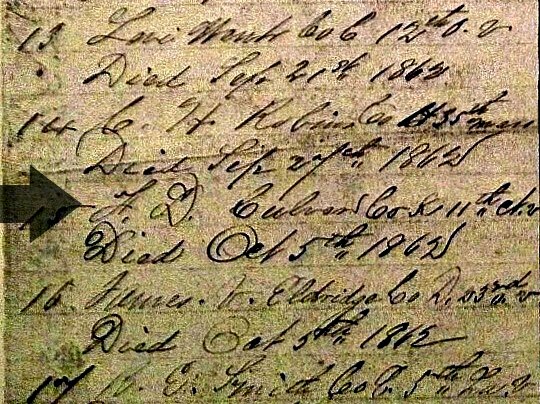 13 Levi Co C 12th O. V
Died Sep 21st 1862
14 C. H. Robins Co H 35th Mass
Died Sep 27th 1862
15 F. D. Culver Co K 11th Ct. V
Died Oct 5th 1862
16 James. W. Eldridge Co D, 23rd O. V
Died Oct 5th 1862
17 Smith Co 5th